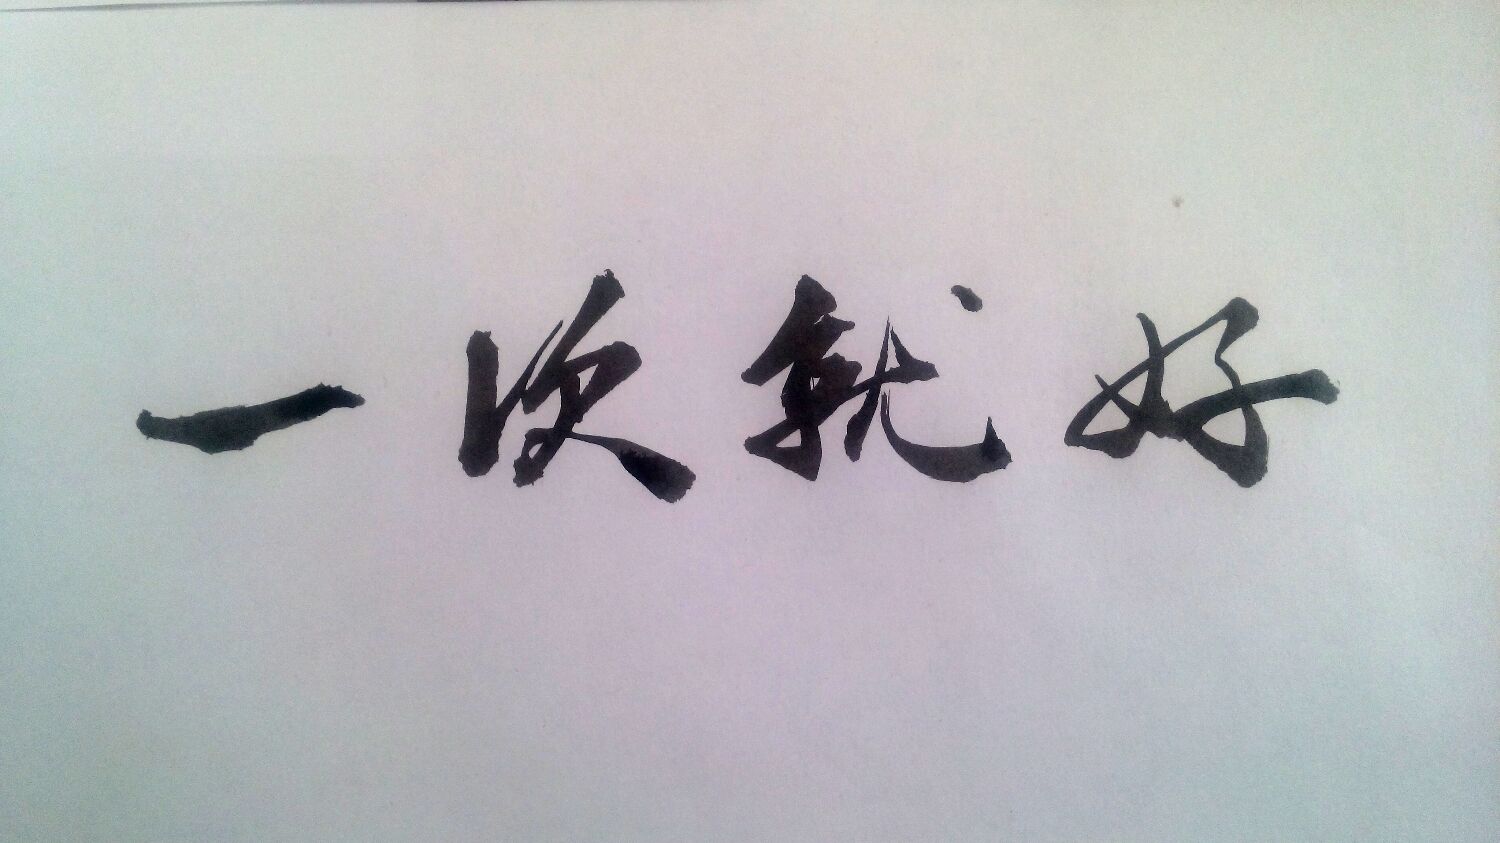 一次就好